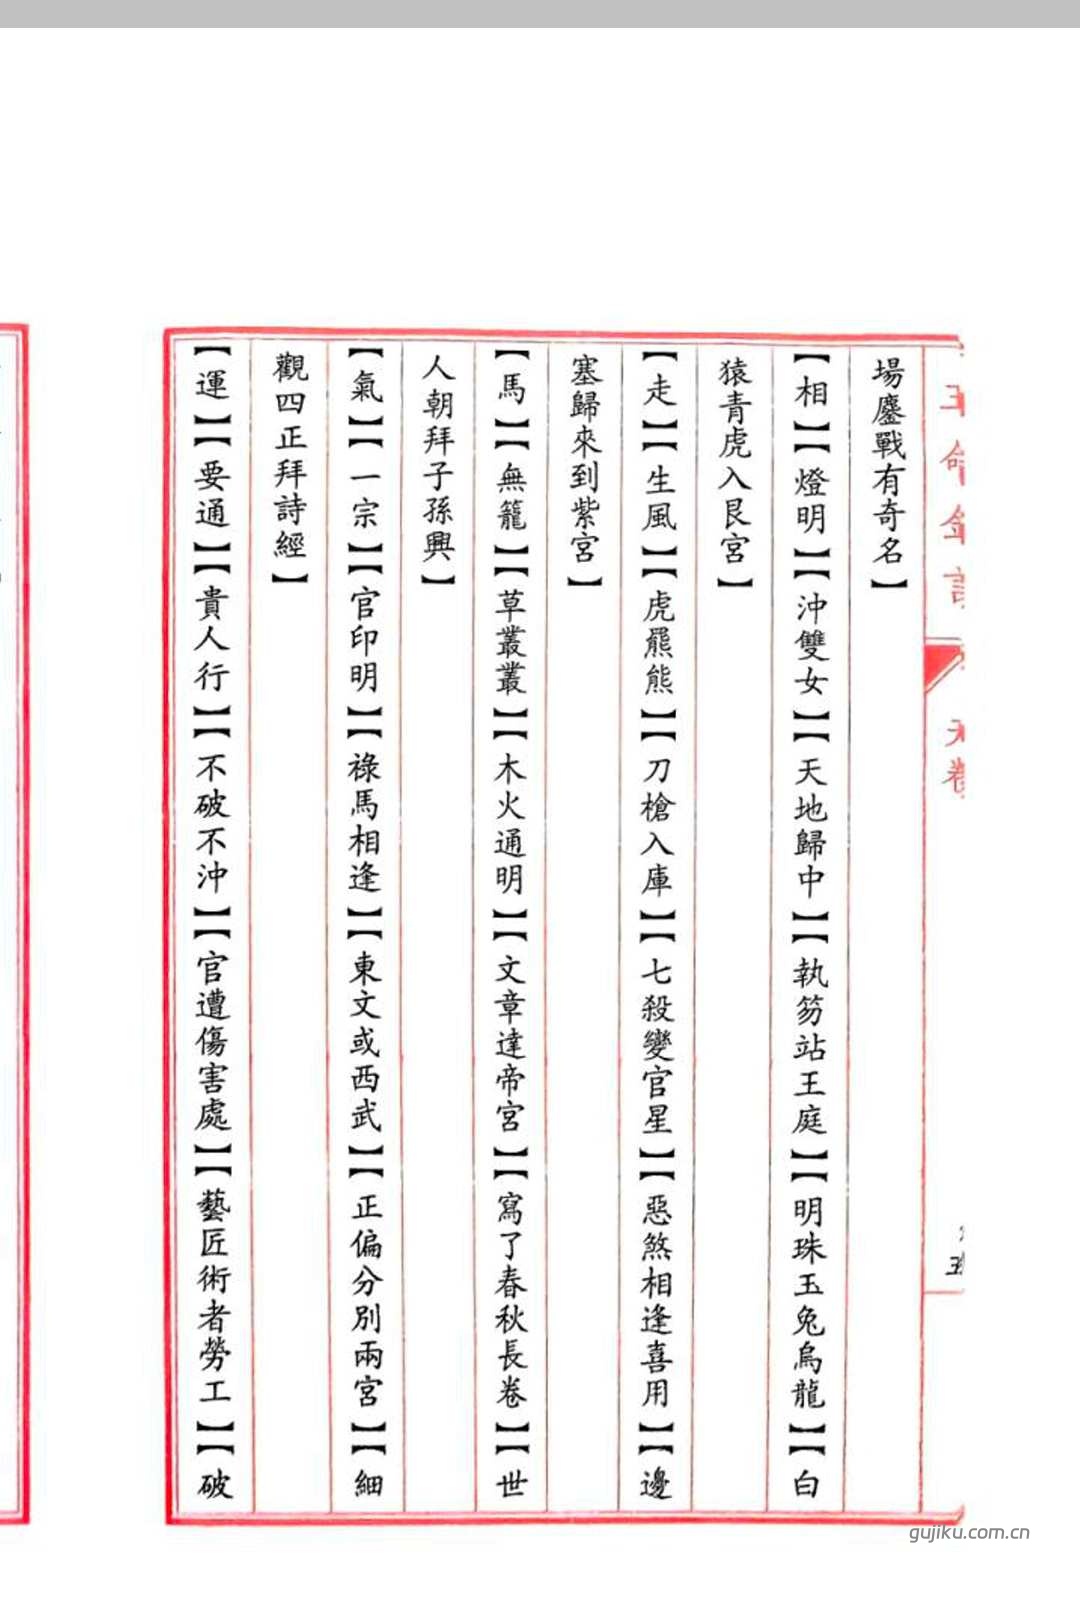 場鏖戰有奇名】
【相】【燈明】【沖雙女】【天地歸中】【執笏站王庭】【明珠玉兔烏龍】【白
猿青虎入艮宮】
【走】【生風】【虎羆熊】【刀槍入庫】【七殺變官星】【惡煞相逢喜用】【邊
塞歸來到紫宮】
【馬】【無籠】【草叢叢】【木火通明】【文章達帝宮】【寫了春秋長卷】【世
人朝拜子孫興】
【氣】【一宗】【官印明】【祿馬相逢】【東文或西武】【正偏分別兩宮】【細
觀四正拜詩經】
【運】【要通】【貴人行】【不破不沖】【官遭傷害處】【藝匠術者勞工】【破
gujiku.com.cn